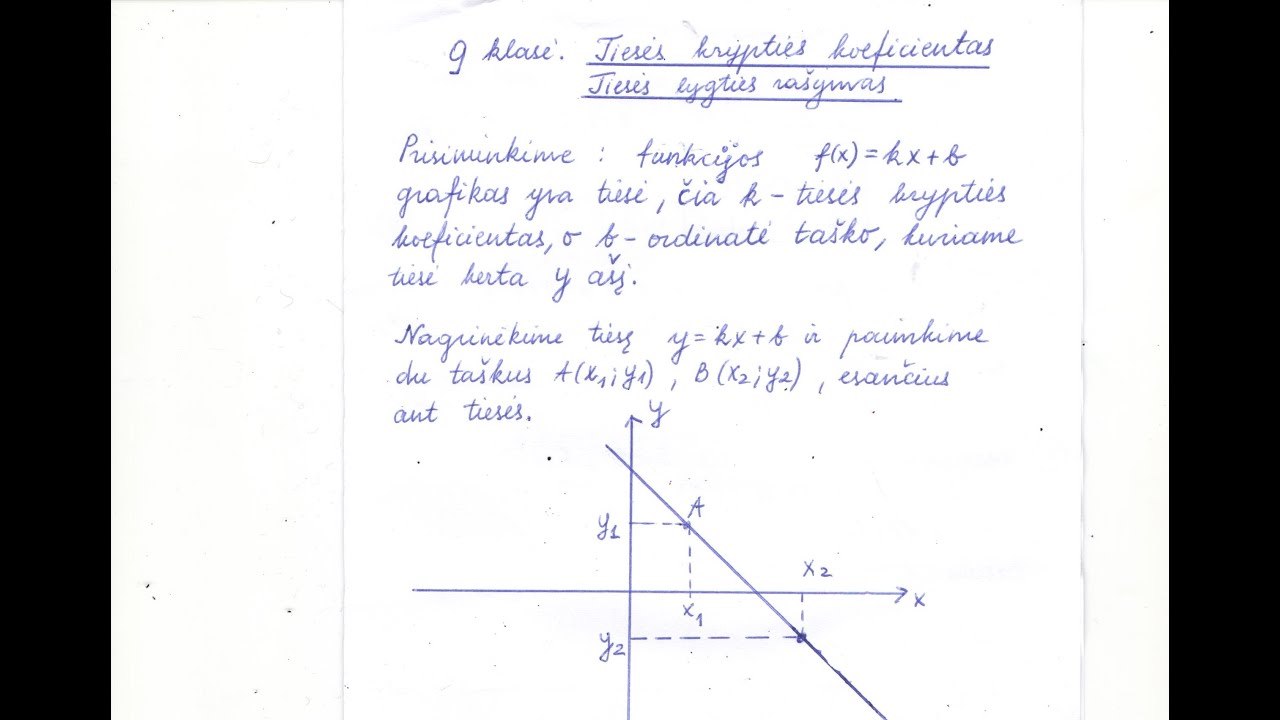 9 klasė. Tiesės krypties koeficientas
Tiesės lygties rašymas.
Prisiminkime : funkcijos f(x) = kx + b
grafikas yra tiesė, čia k - tiesės krypties
koeficientas, o b - ordinatė taško, kuriame
tiesė kerta y ašį.
Nagrinėkime tiesę y = kx + b ir paimkime
du taškus A(x₁; y1) , B(x₂; y₂) , esančius
ant tiesės.
y
A
y1
x₂
x
x₁
y₂